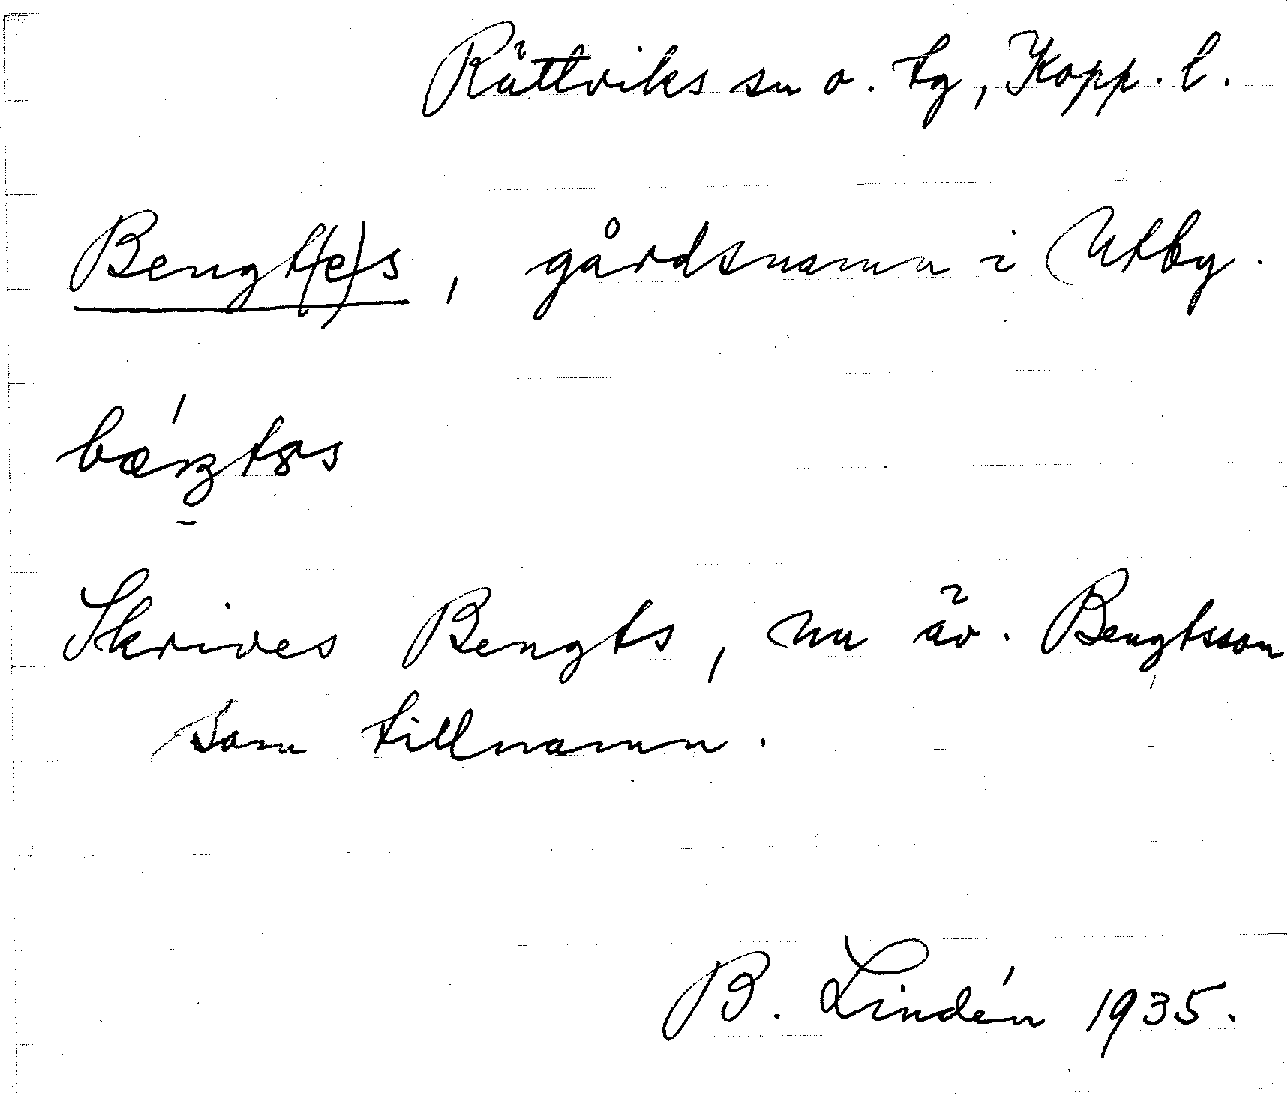 Rättviks sn o. tg, Kopp. l.
Bengt(e)s, gårdsnamn i Utby.
Skrives Bengts, nu äv. Bengtsson
som tillnamn.
B. Lindén 1935.